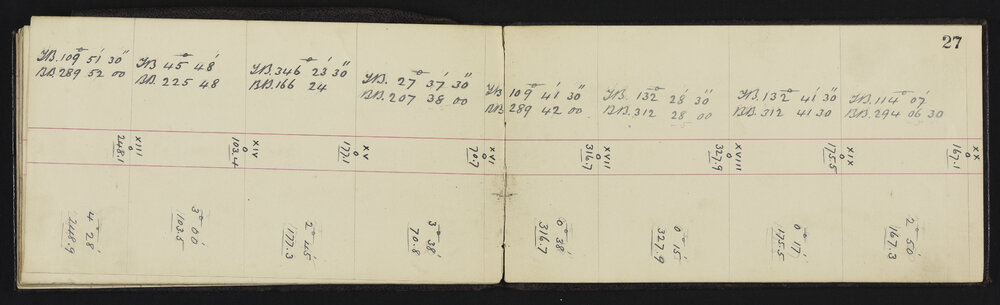 27
F.B. 109° 51' 30"
B.B. 289 52 00
F.B. 45° 48'
B.B. 225 48
F.B. 346° 23' 30"
B.B. 166 24
F.B. 27° 37' 30"
B.B. 207 38 00
F.B. 109° 41' 30"
B.B. 289 42 00
F.B. 132° 28' 30"
B.B. 312 28 00
F.B. 132° 41' 30"
B.B. 312 41 30
F.B. 114° 07'
B.B. 294 06 30
XIII
248.1
XIV
103.4
XV
177.1
XVI
70.7
XVII
316.7
XVIII
327.9
XIX
175.5
XX
167.1
4° 28'
248.9
3° 00'
103.5
2° 45'
177.3
3° 38'
70.8
0° 38'
316.7
0° 15'
327.9
0° 17'
175.5
2° 50'
167.3